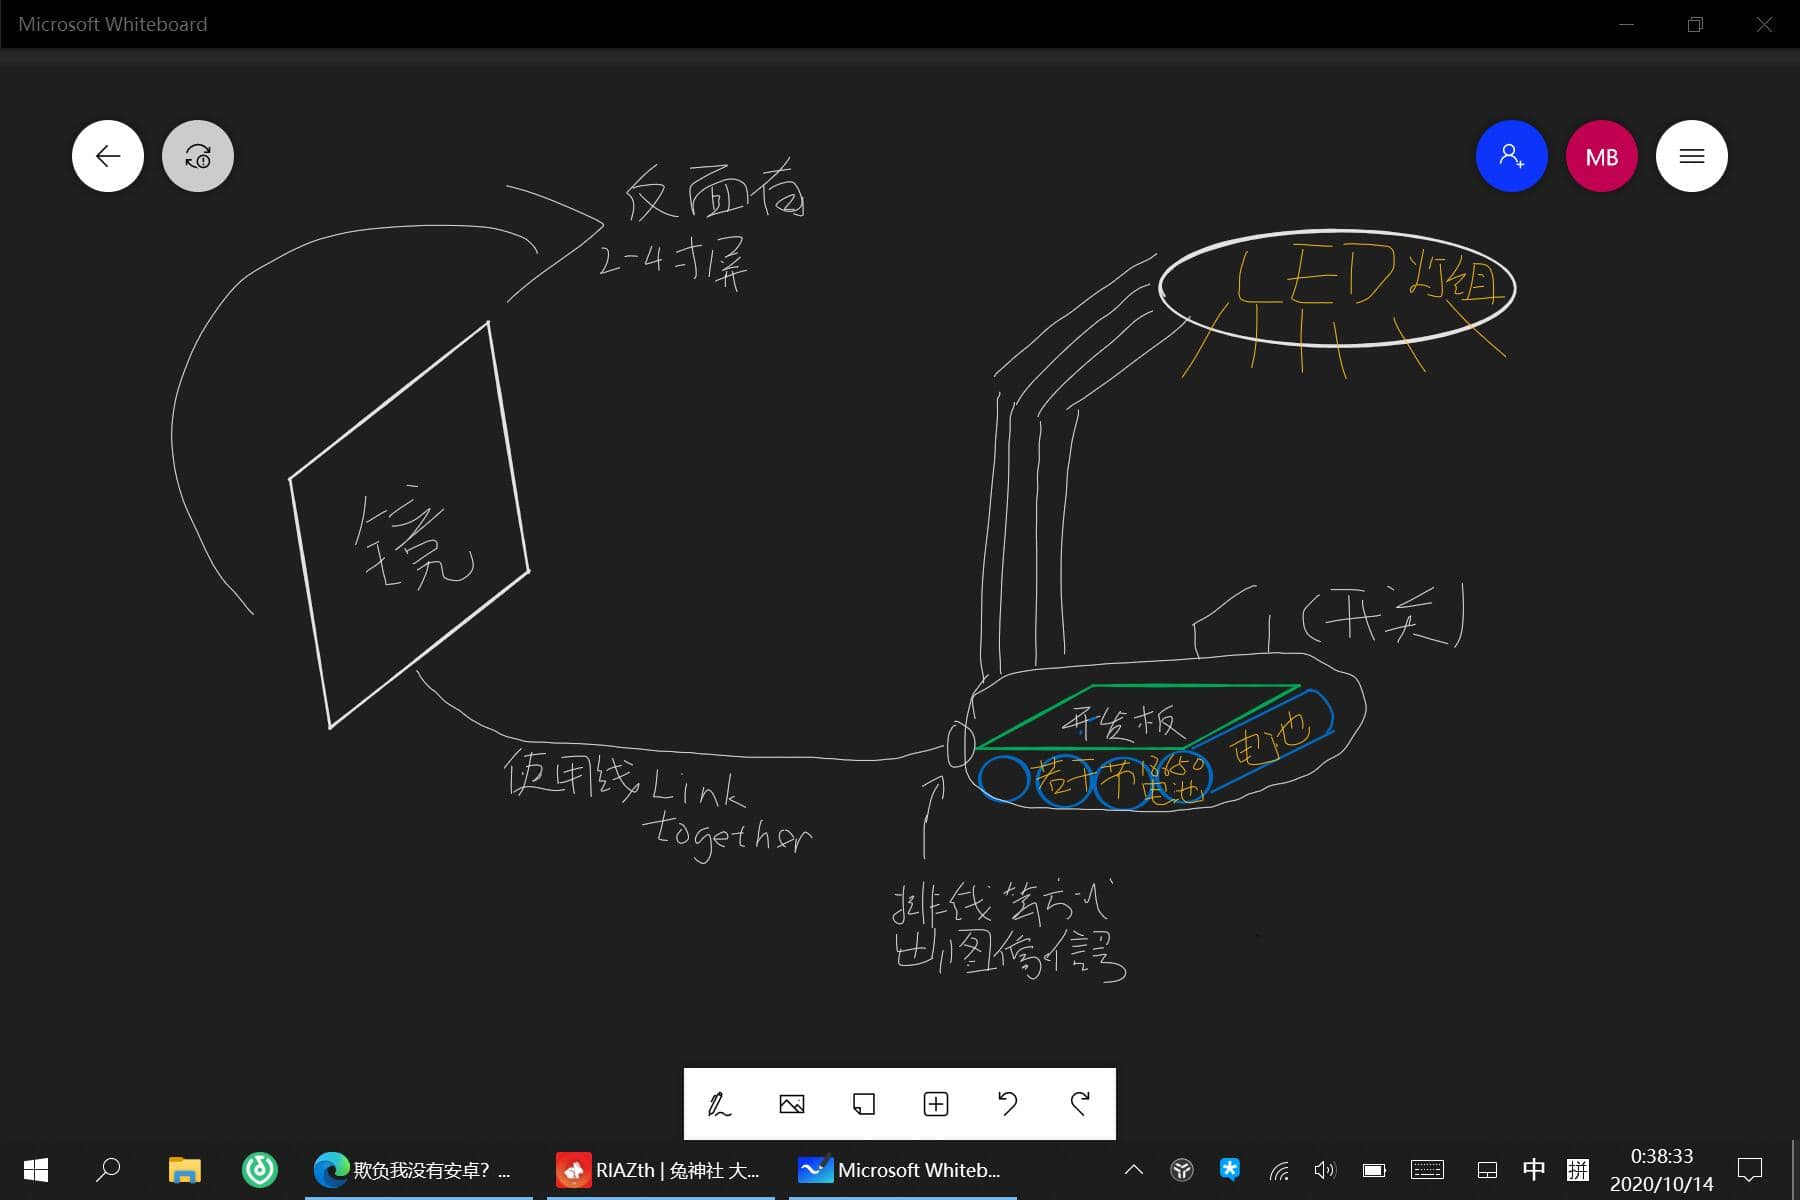 Microsoft Whiteboard
MB
反面有
2-4寸屏
LED灯组
镜
(开关)
开发板
电池
若干节18650
电池
使用线Link
together
排线等方式
出图像信号
欺负我没有安卓? ...
RIAZth | 兔神社 大...
Microsoft Whiteb...
中
拼
0:38:33
2020/10/14